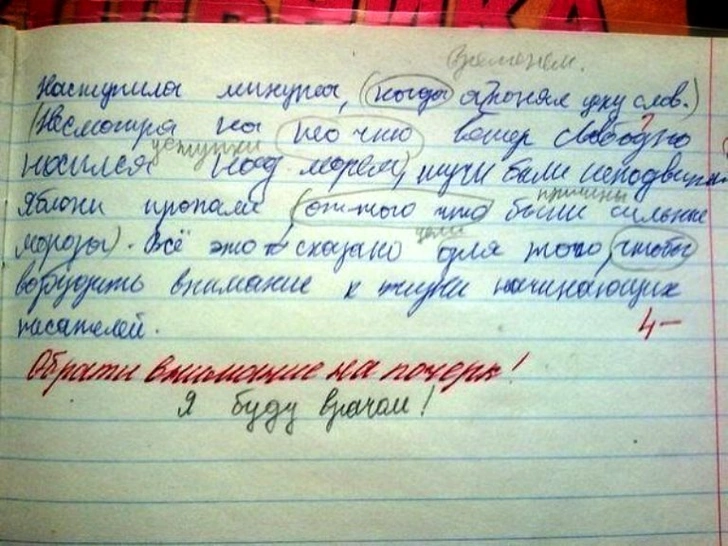 временем.
Наступила минута, (когда я понял цену слов.)
(Несмотря на то что ветер свободно
уступки
носился над морем), тучи были неподвижн
причины
Яблони пропали (оттого что были сильные
цели
морозы). Всё это сказано для того, чтобы
возбудить внимание к жизни начинающих
писателей. 4-
Обрати внимание на почерк!
Я буду врачом!